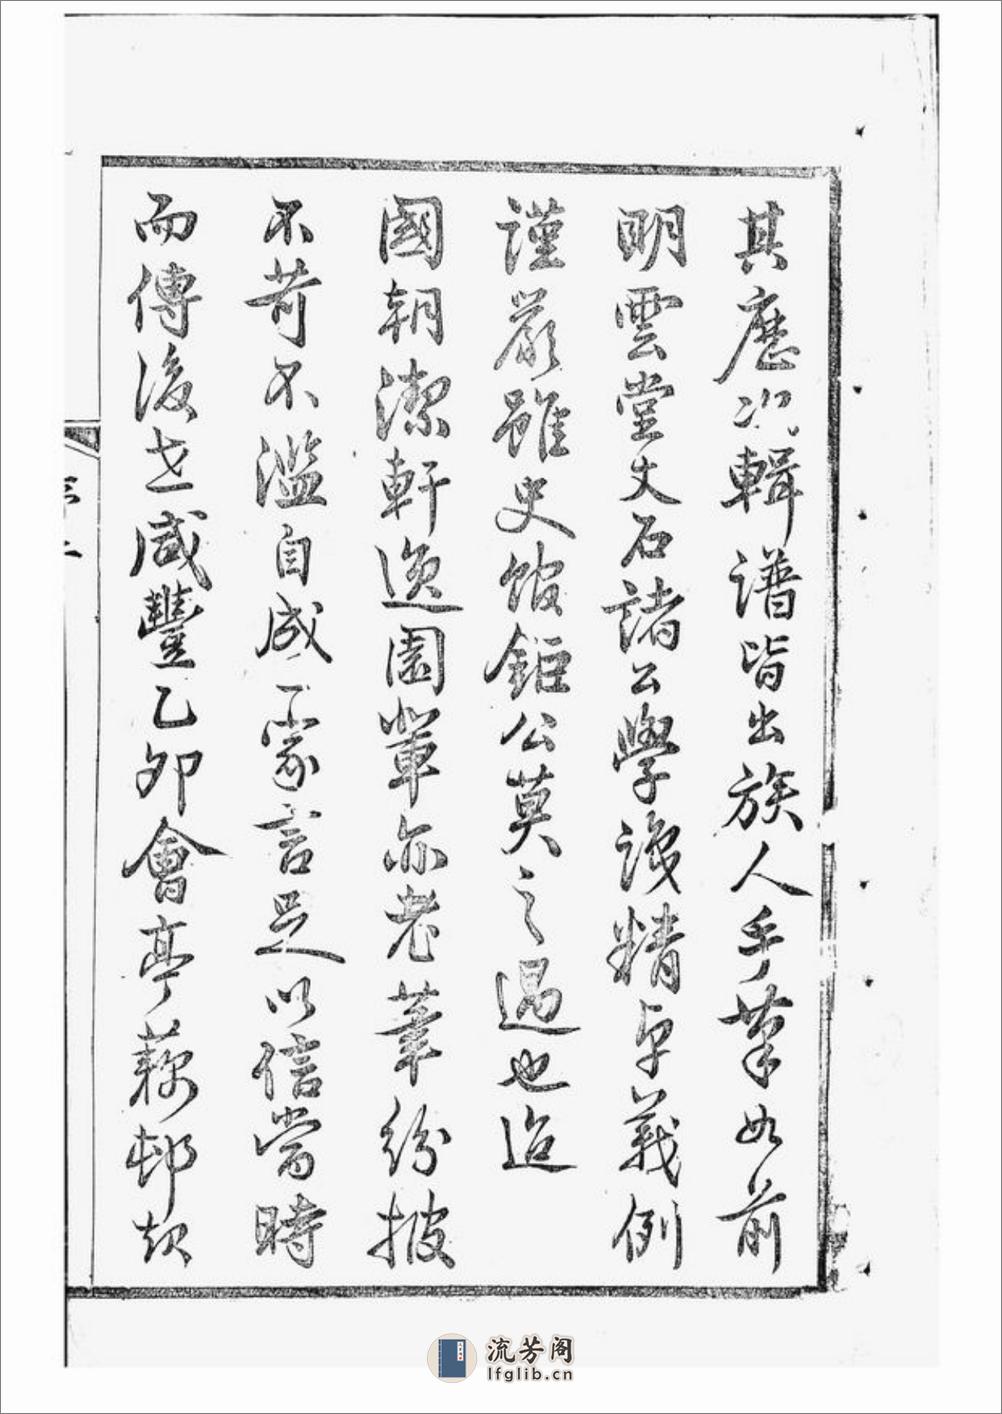 其歷次輯譜皆出族人手筆如前
明雲堂文石諸公學識精卓義例
謹嚴雖史館鉅公莫之過也迨
國朝潔軒逸園輩亦老筆紛披
不苟不濫自成一家言足以信當時
而傳後世咸豐乙卯會亭蘇邨
流芳阁
lfglib.cn